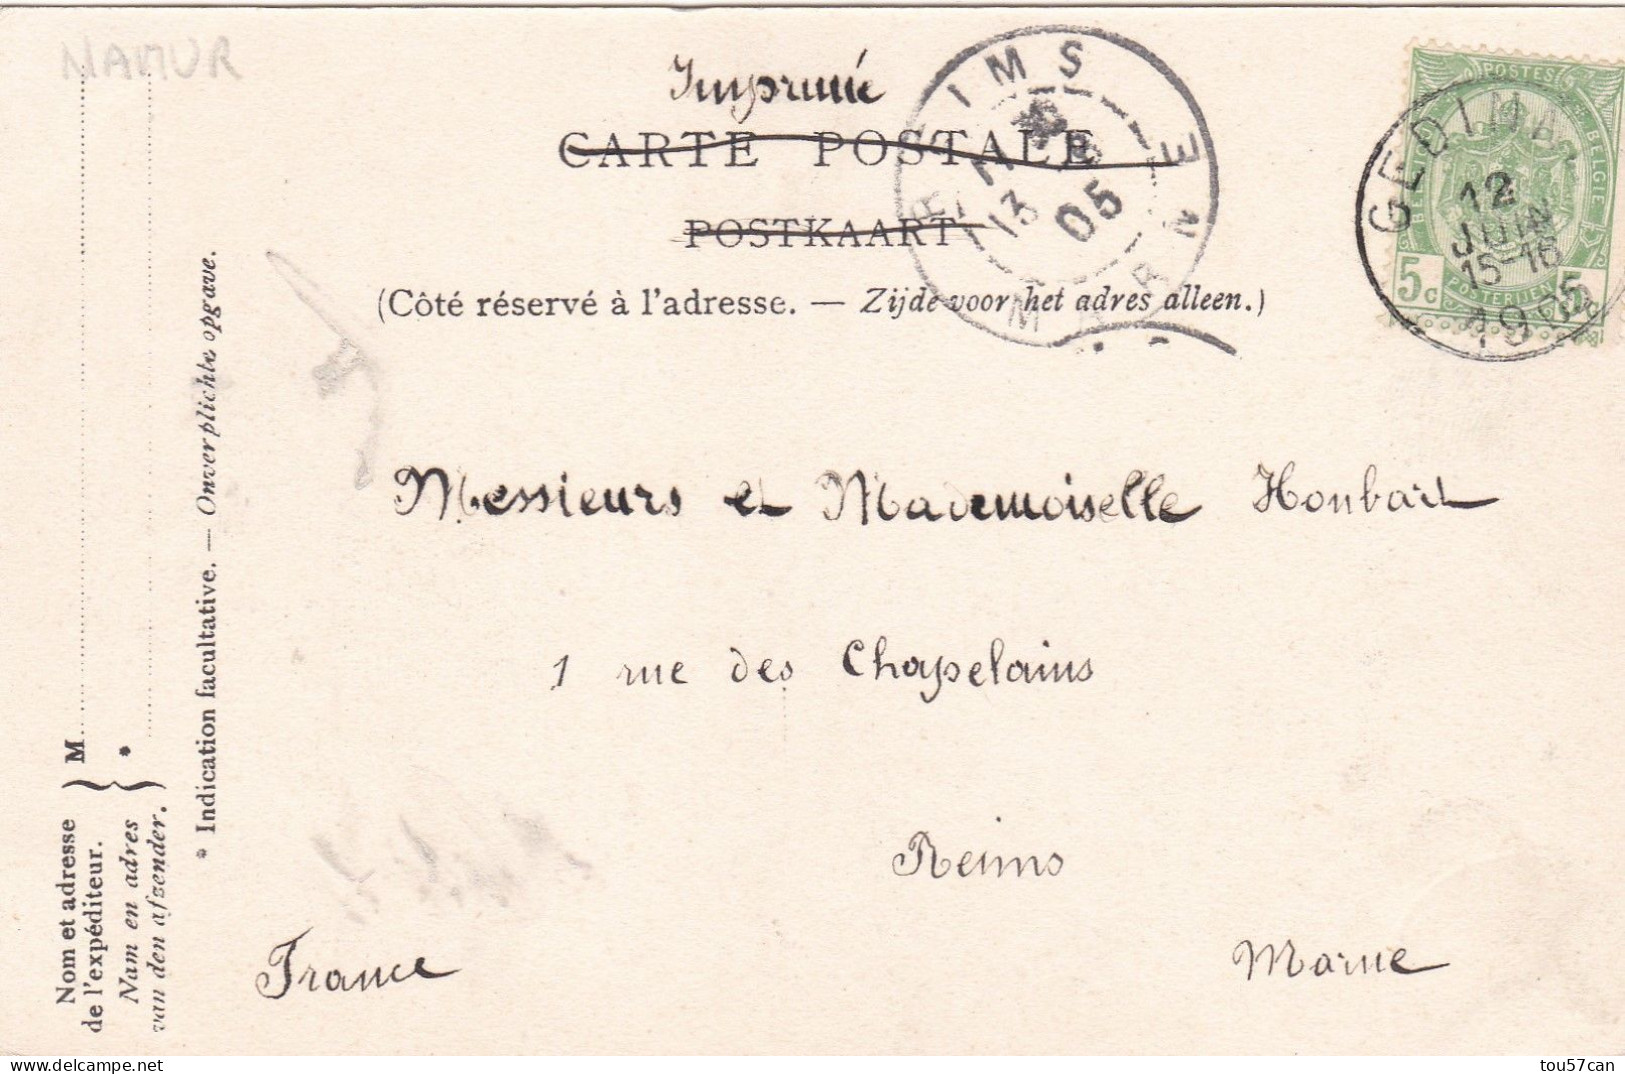 NAMUR
Imprimé
CARTE POSTALE
POSTKAART
(Côté réservé à l'adresse. — Zijde voor het adres alleen.)
REIMS
13 05
MARNE
POSTES
BELGIQUE BELGIE
5c 5c
POSTERIJEN
GEDINNE
12
JUIN
15-16
1905
Messieurs et Mademoiselle Houbart
1 rue des Chapelains
Reims
France Marne
Nom et adresse
de l'expéditeur.
Nam en adres
van den afzender.
M
*
* Indication facultative. — Onverplichte opgave.
tou57can